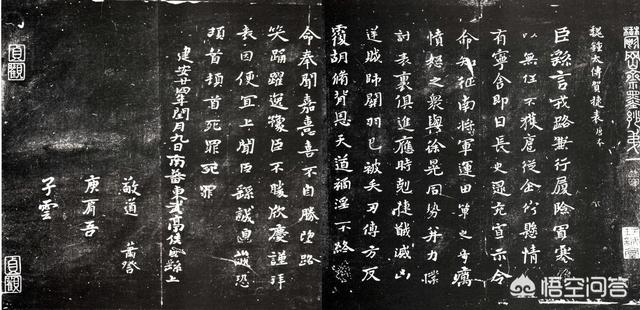 魏鍾太傅賀捷表唐本
臣繇言戎路兼行履險冒寒臣
以無任不獲扈從企佇懸情
有寧舍即日長史逯充宣示令
命知征南將軍運田單之奇厲
憤怒之衆與徐晃同勢并力撲
討表裏俱進應時剋捷馘滅凶
逆賊帥關羽已被矢刃傅方反
覆胡脩背恩天道禍淫不終
命奉聞嘉憙喜不自勝望路
笑踊躍逸豫臣不勝欣慶謹拜
表因便宜上聞臣繇誠惶誠恐
頓首頓首死罪死罪
建安廿四年閏月九日南蕃東武亭侯臣繇上
敬道
庾肩吾
子雲
貞觀
貞觀
悟空问答